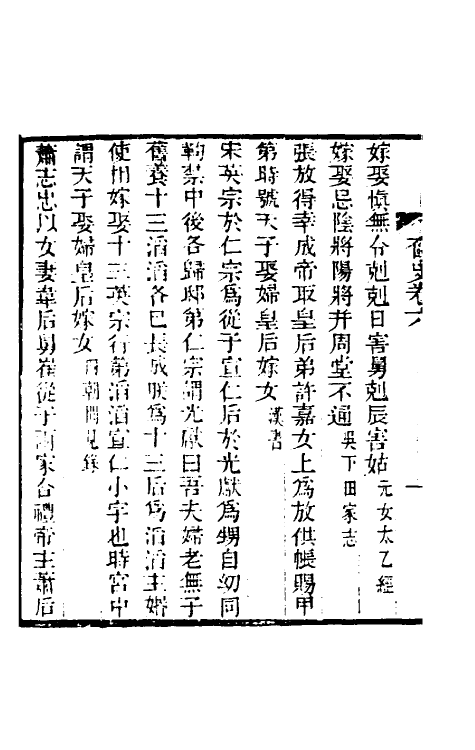 奩史卷六 一
嫁娶愼無合剋剋日害舅剋辰害姑元女太乙經
嫁娶忌陰將陽將并周堂不通吳下田家志
張放得幸成帝取皇后弟許嘉女上爲放供帳賜甲
第時號天子娶婦皇后嫁女漢書
宋英宗於仁宗爲從子宣仁后於光獻爲甥自幼同
鞠禁中後各歸邸第仁宗謂光獻曰吾夫婦老無子
舊養十三滔滔各已長成朕爲十三后爲滔滔主婚
使相嫁娶十三英宗行第滔滔宣仁小字也時宮中
謂天子娶婦皇后嫁女聞見錄
蕭志忠以女妻韋后舅崔從子兩家合禮帝主蕭后